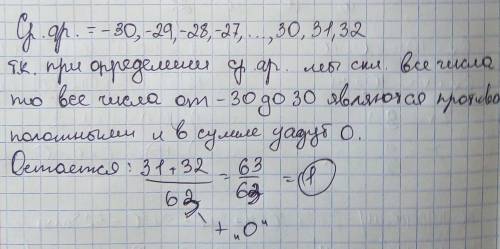 Ср. ар. = -30, -29, -28, -27, ..., 30, 31, 32
т.к. при определении ср. ар. мы скл. все числа
то все числа от -30 до 30 являются противо
положными и в сумме дадут 0.
Остается: (31+32)/63 = 63/63 = 1
+ „0"